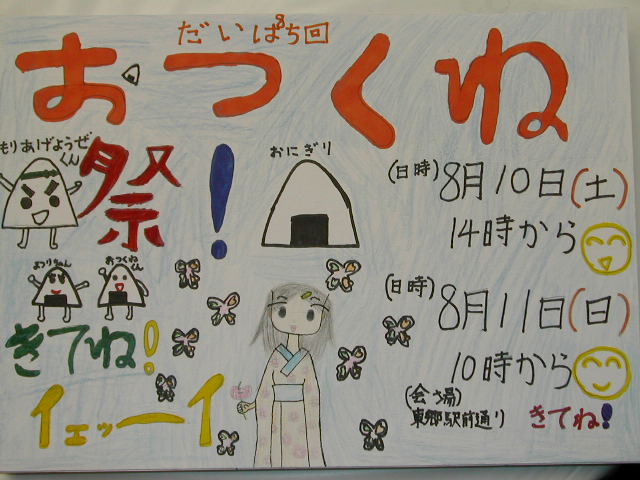 だいぱち回
8
おつくね
祭!
もりあげようぜ
くん
おにぎり
(日時)8月10日(土)
14時から
おつくね
くん
(日時)8月11日(日)
10時から
きてね!
イエッーイ
(会場)
東郷駅前通り
きてね!